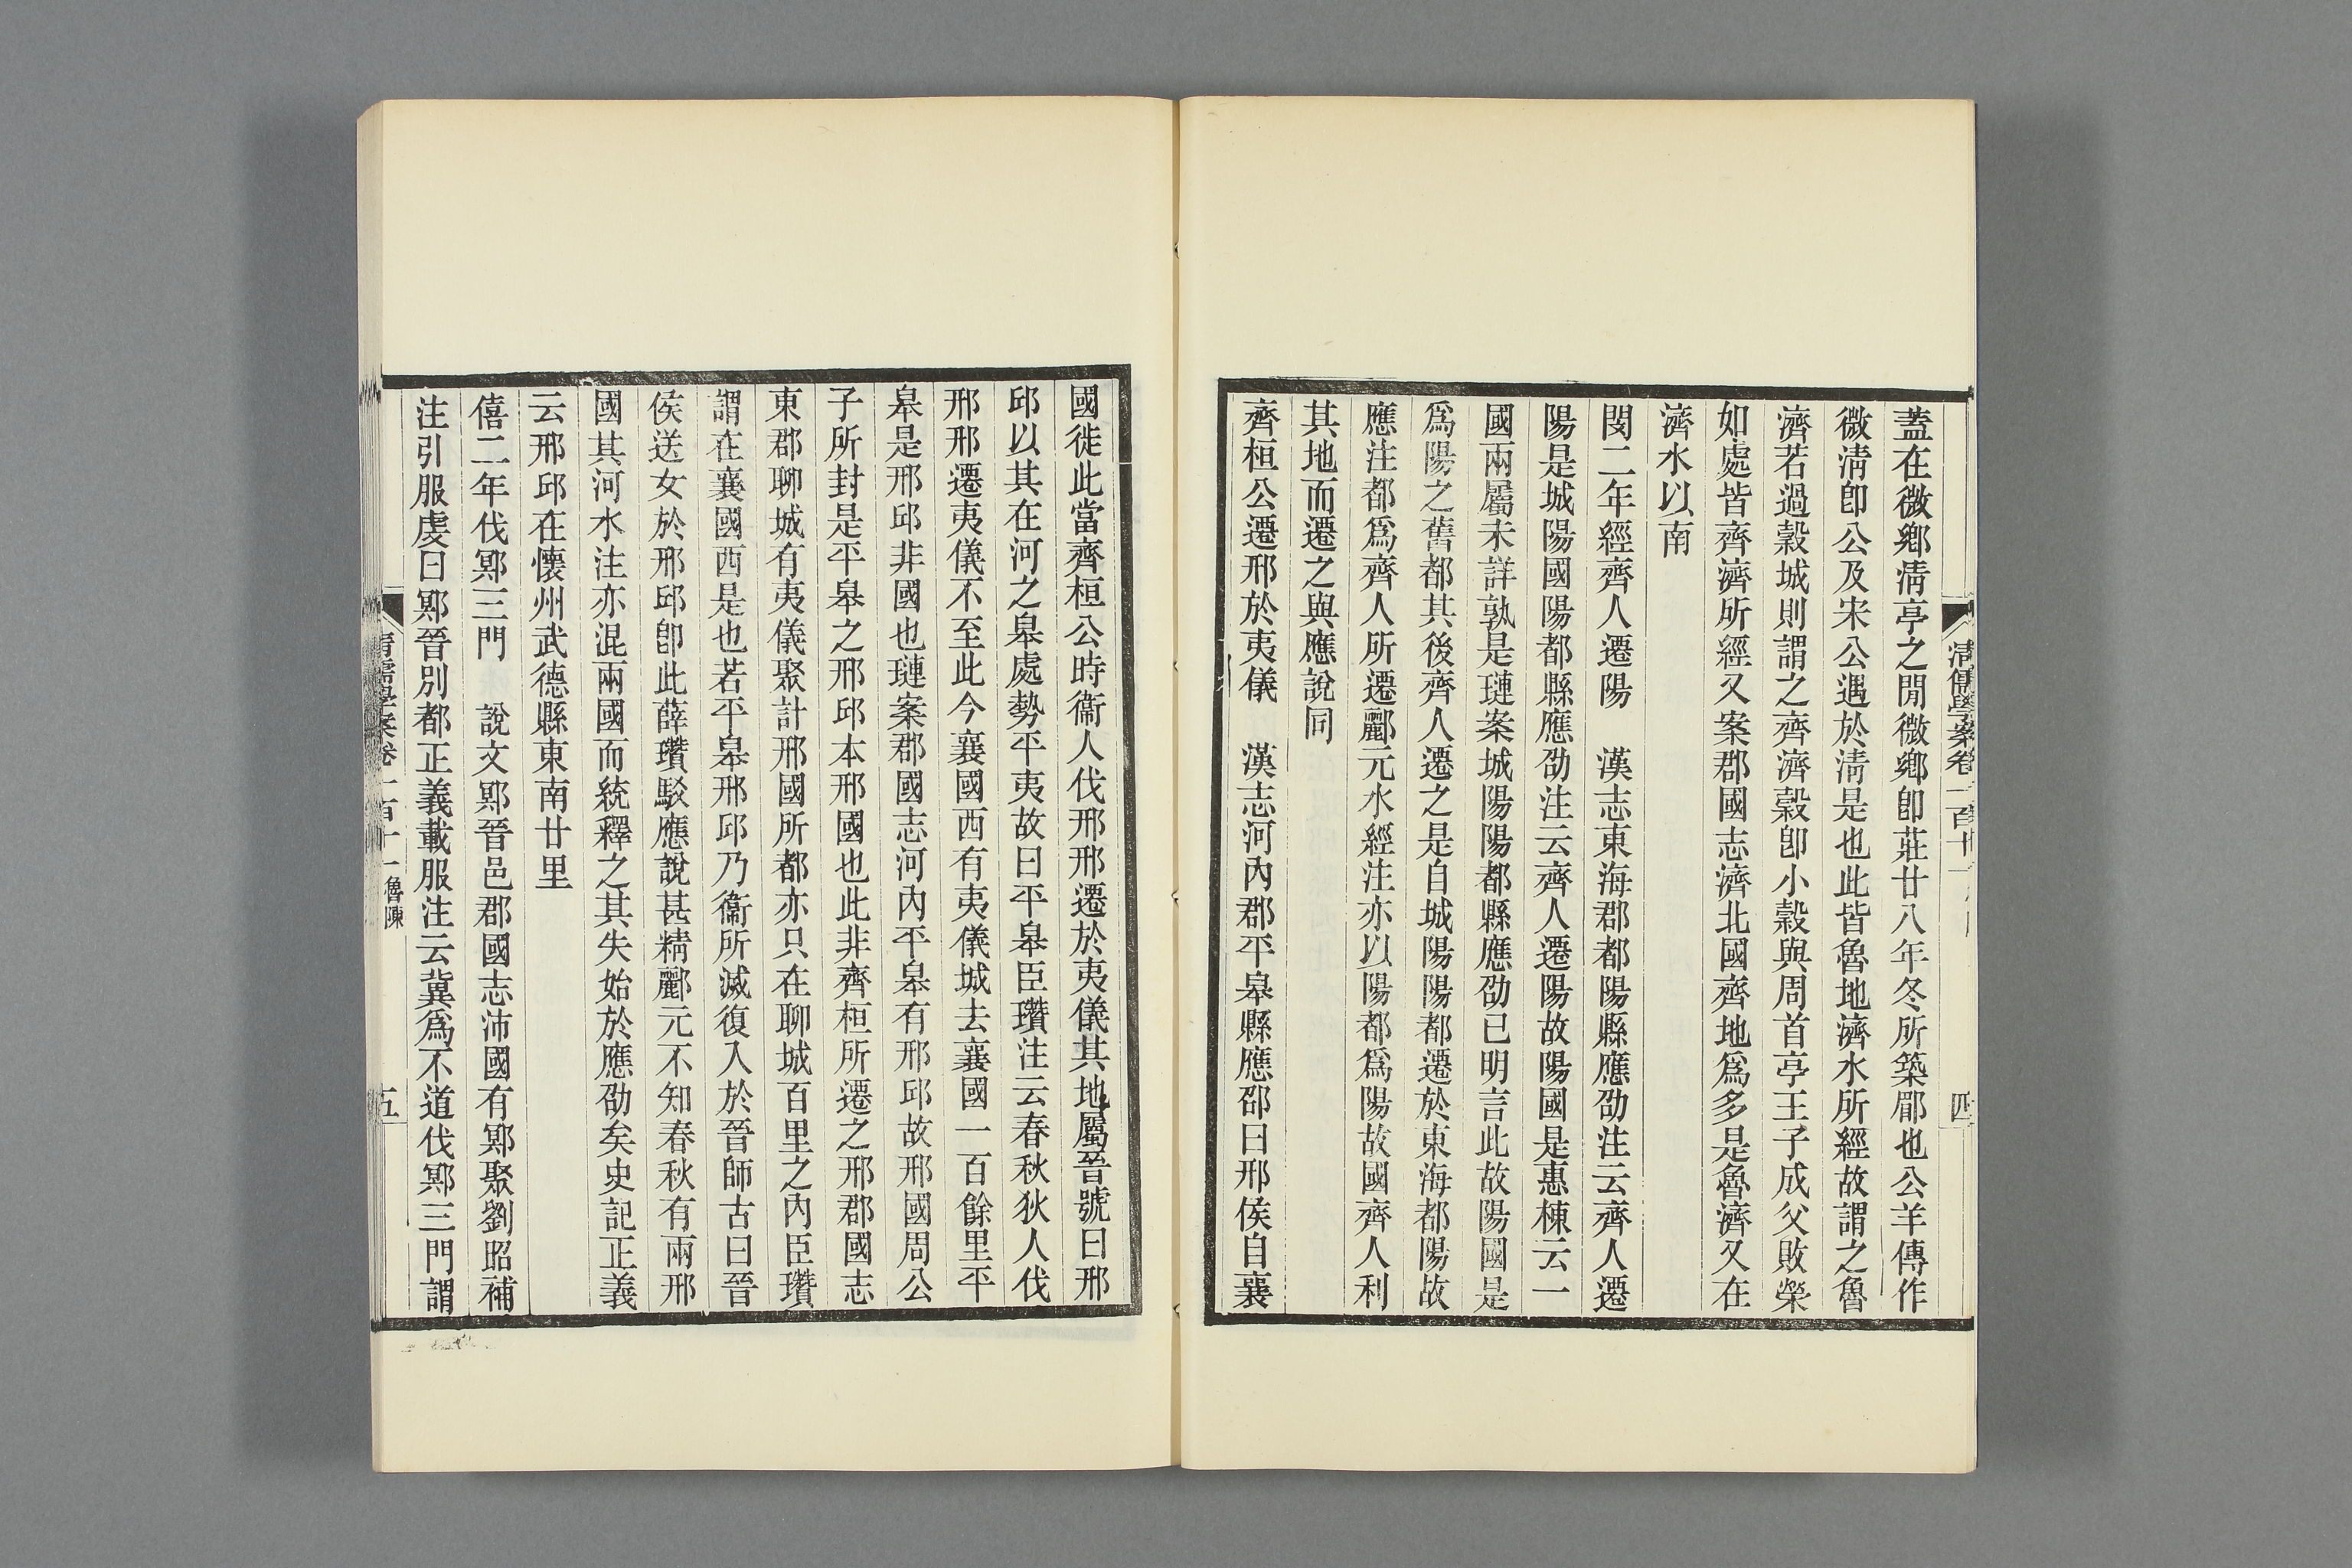 蓋在微鄉淸亭之閒微鄉卽莊廿八年冬所築郿也公羊傳作
微淸卽公及宋公遇於淸是也此皆魯地濟水所經故謂之魯
濟若過穀城則謂之齊濟穀卽小穀與周首亭王子成父敗榮
如處皆齊濟所經又案郡國志濟北國齊地爲多是魯濟又在
濟水以南
閔二年經齊人遷陽　漢志東海郡都陽縣應劭注云齊人遷
陽是城陽國陽都縣應劭注云齊人遷陽故陽國是惠棟云一
國兩屬未詳孰是璉案城陽陽都縣應劭已明言此故陽國是
爲陽之舊都其後齊人遷之是自城陽陽都遷於東海都陽故
應注都爲齊人所遷酈元水經注亦以陽都爲陽故國齊人利
其地而遷之與應說同
齊桓公遷邢於夷儀　漢志河內郡平皋縣應邵曰邢侯自襄
國徙此當齊桓公時衞人伐邢邢遷於夷儀其地屬晉號曰邢
邱以其在河之皋處勢平夷故曰平皋臣瓚注云春秋狄人伐
邢邢遷夷儀不至此今襄國西有夷儀城去襄國一百餘里平
皋是邢邱非國也璉案郡國志河內平皋有邢邱故邢國周公
子所封是平皋之邢邱本邢國也此非齊桓所遷之邢郡國志
東郡聊城有夷儀聚計邢國所都亦只在聊城百里之內臣瓚
謂在襄國西是也若平皋邢邱乃衞所滅復入於晉師古曰晉
侯送女於邢邱卽此薛瓚駁應說甚精酈元不知春秋有兩邢
國其河水注亦混兩國而統釋之其失始於應劭矣史記正義
云邢邱在懷州武德縣東南廿里
僖二年伐鄍三門　說文鄍晉邑郡國志沛國有鄍聚劉昭補
注引服虔曰鄍晉別都正義載服注云冀爲不道伐鄍三門謂